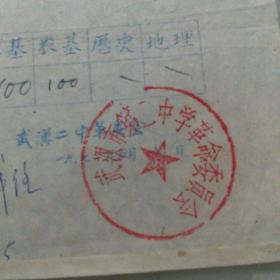 基 农基 历史 地理
100 100 / /
武汉二中革委会
一九七 月 日
武汉市第二中学革命委员会
任
5